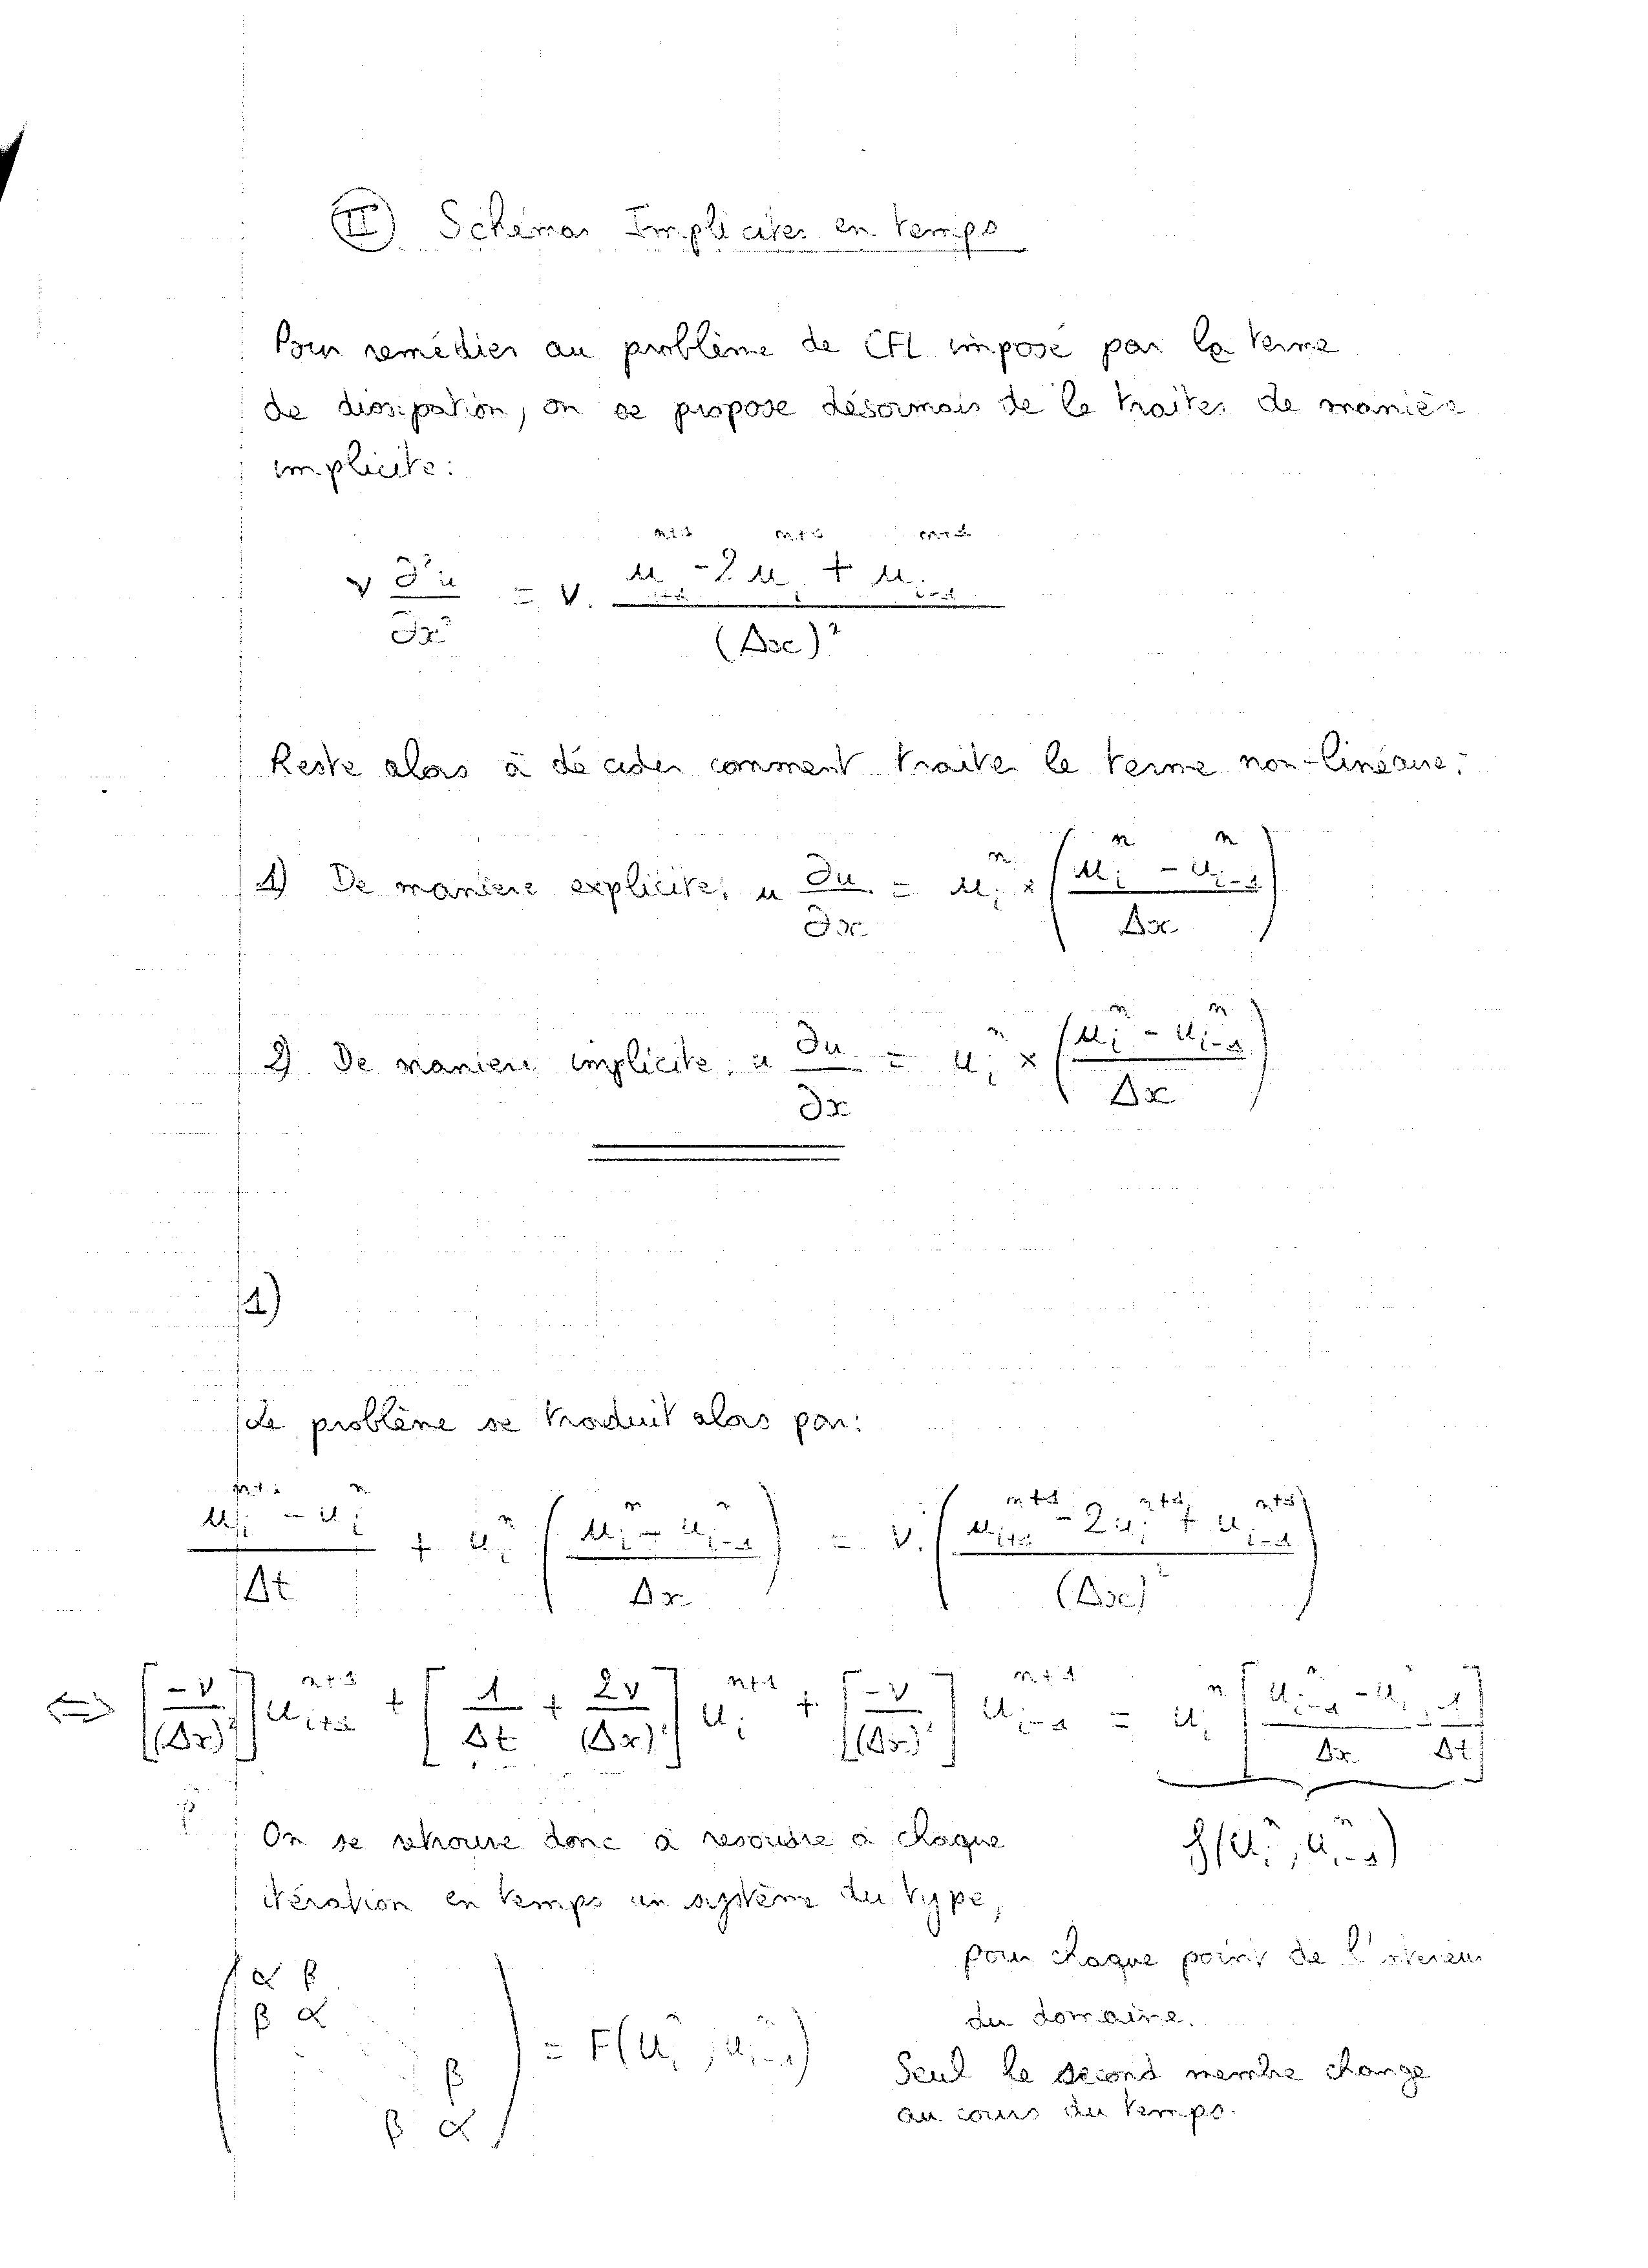 II) Schémas Implicites en temps
Pour remédier au problème de CFL imposé par le terme
de dissipation, on se propose désormais de le traiter de manière
implicite:
ν ∂²u/∂x² = ν. (u_{i+1}^{n+1} - 2u_i^{n+1} + u_{i-1}^{n+1})/(Δx)²
Reste alors à décider comment traiter le terme non-linéaire:
1) De manière explicite: u ∂u/∂x = u_i^n × ((u_i^n - u_{i-1}^n)/Δx)
2) De manière implicite: u ∂u/∂x = u_i^n × ((u_i^n - u_{i-1}^n)/Δx)
1)
Le problème se traduit alors par:
(u_i^{n+1} - u_i^n)/Δt + u_i^n ((u_i^n - u_{i-1}^n)/Δx) = ν. ((u_{i+1}^{n+1} - 2u_i^{n+1} + u_{i-1}^{n+1})/(Δx)²)
⟺ [-ν/(Δx)²] u_{i+1}^{n+1} + [1/Δt + 2ν/(Δx)²] u_i^{n+1} + [-ν/(Δx)²] u_{i-1}^{n+1} = u_i^n [(u_{i-1}^n - u_i^n)/Δx 1/Δt]
f(u_i^n, u_{i-1}^n)
On se retrouve donc à résoudre à chaque
itération en temps un système du type,
pour chaque point de l'intérieur
du domaine.
α β
β α
β
β α
= F(u_i^n, u_{i-1}^n)
Seul le second membre change
au cours du temps.